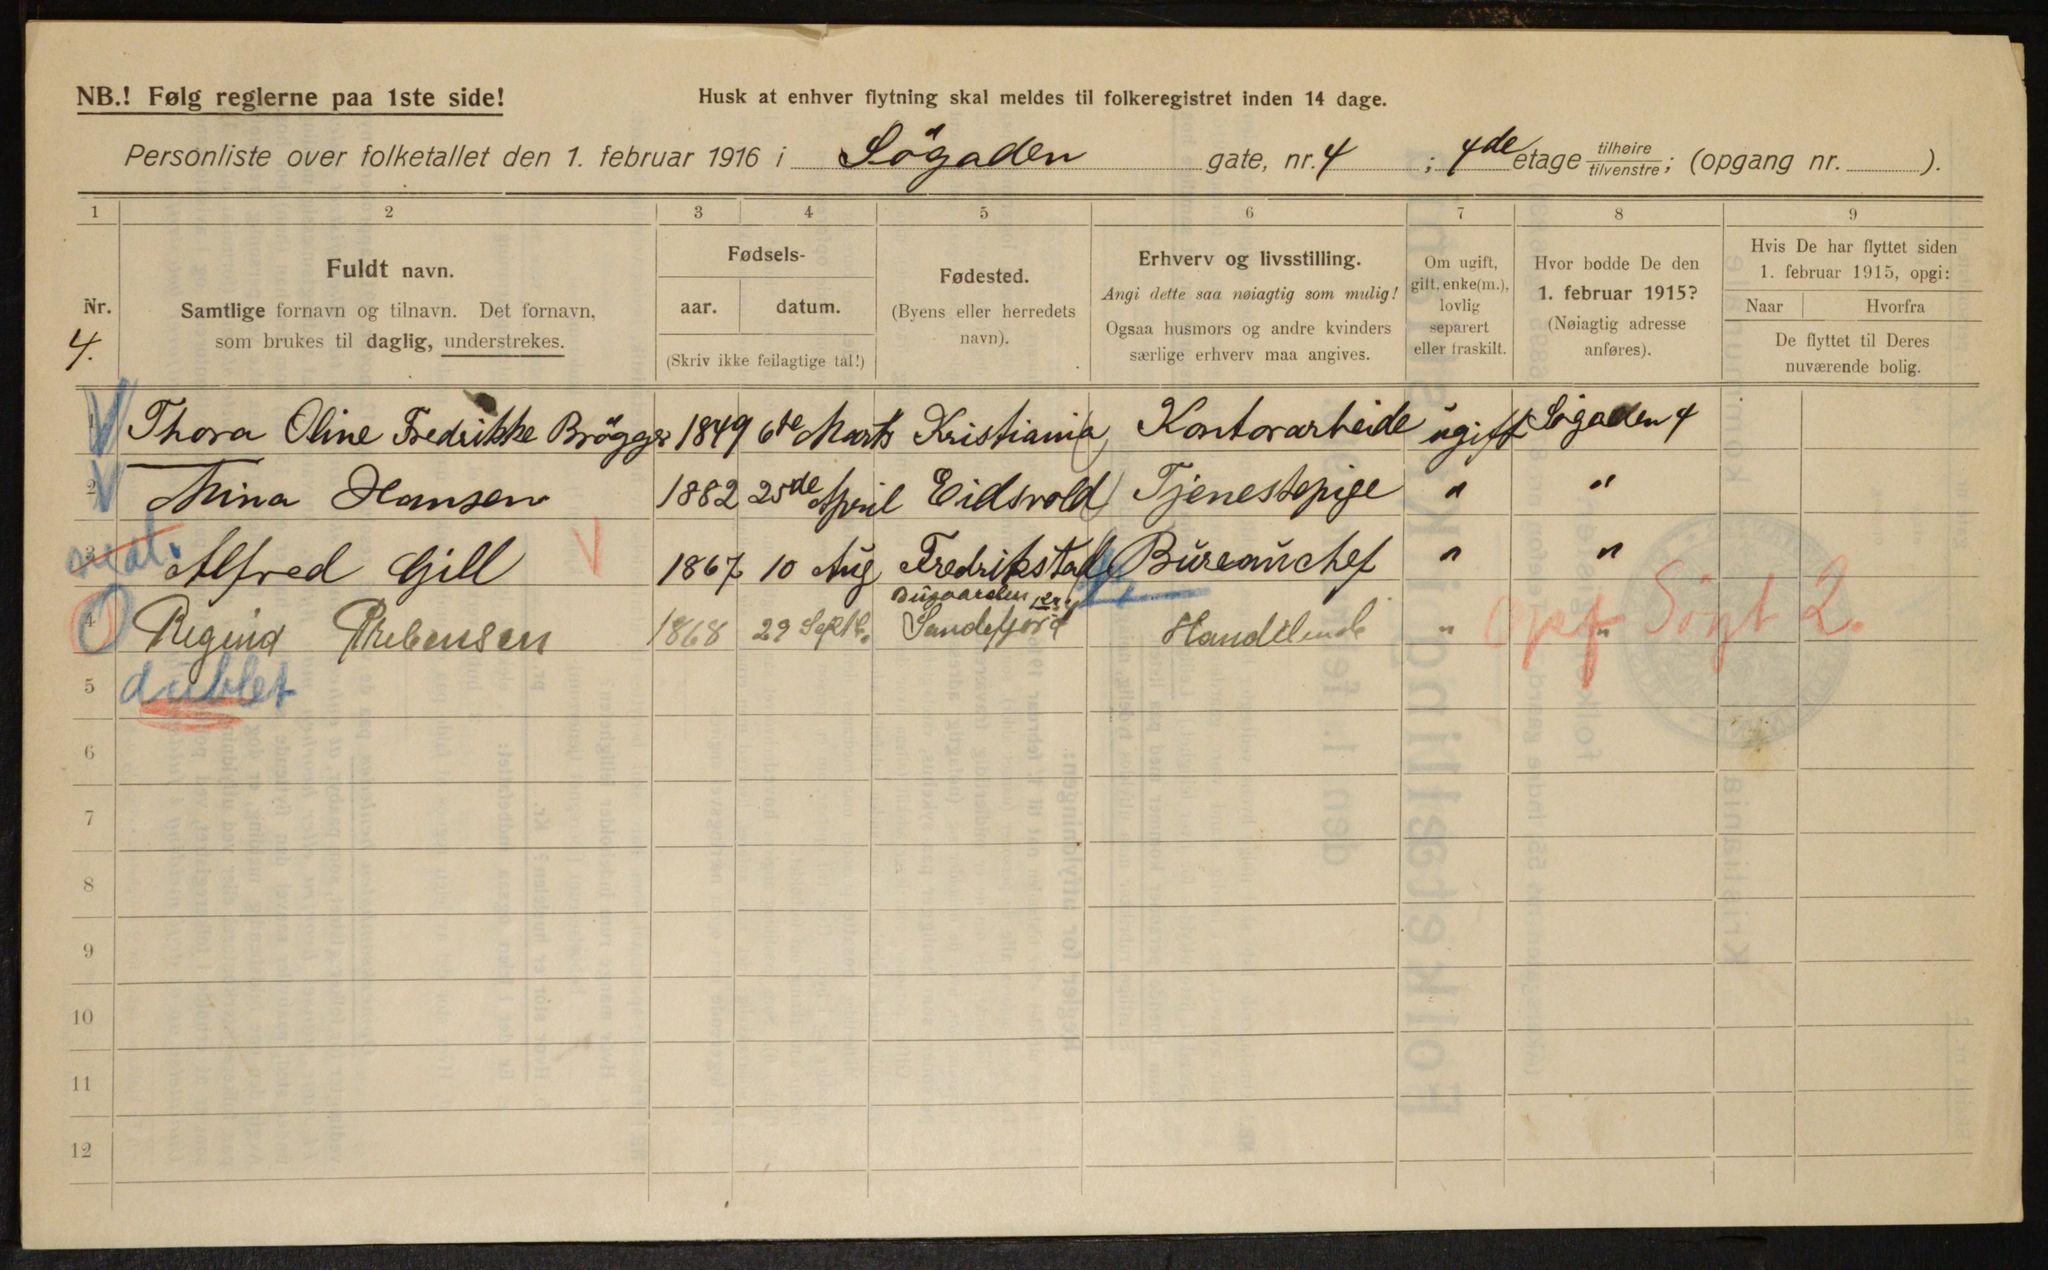 NB.! Følg reglerne paa 1ste side!
Husk at enhver flytning skal meldes til folkeregistret inden 14 dage.
Personliste over folketallet den 1. februar 1916 i Søgaden gate, nr. 4 ; 4de etage tilhøire tilvenstre ; (opgang nr. ).
1 2 3 4 5 6 7 8 9
Nr.
4.
Fuldt navn.
Samtlige fornavn og tilnavn. Det fornavn,
som brukes til daglig, understrekes.
Fødsels-
aar. datum.
(Skriv ikke feilagtige tal!)
Fødested.
(Byens eller herredets
navn).
Erhverv og livsstilling.
Angi dette saa nøiagtig som mulig!
Ogsaa husmors og andre kvinders
særlige erhverv maa angives.
Om ugift,
gift, enke(m.),
lovlig
separert
eller fraskilt.
Hvor bodde De den
1. februar 1915?
(Nøiagtig adresse
anføres).
Hvis De har flyttet siden
1. februar 1915, opgi:
Naar Hvorfra
De flyttet til Deres
nuværende bolig.
1 Thora Oline Fredrikke Brøgger 1849 6te Marts Kristiania Kontorarbeide ugift Søgaden 4
2 Mina Hansen 1882 25de April Eidsvold Tjenestepige " "
3 Alfred Gill 1867 10 Aug Fredrikstad Bureauchef " "
4 Regina Prebensen 1868 29 Septb. Sandefjord Handlende " " Opf Søgt 2.
5 dublet
6
7
8
9
10
11
12